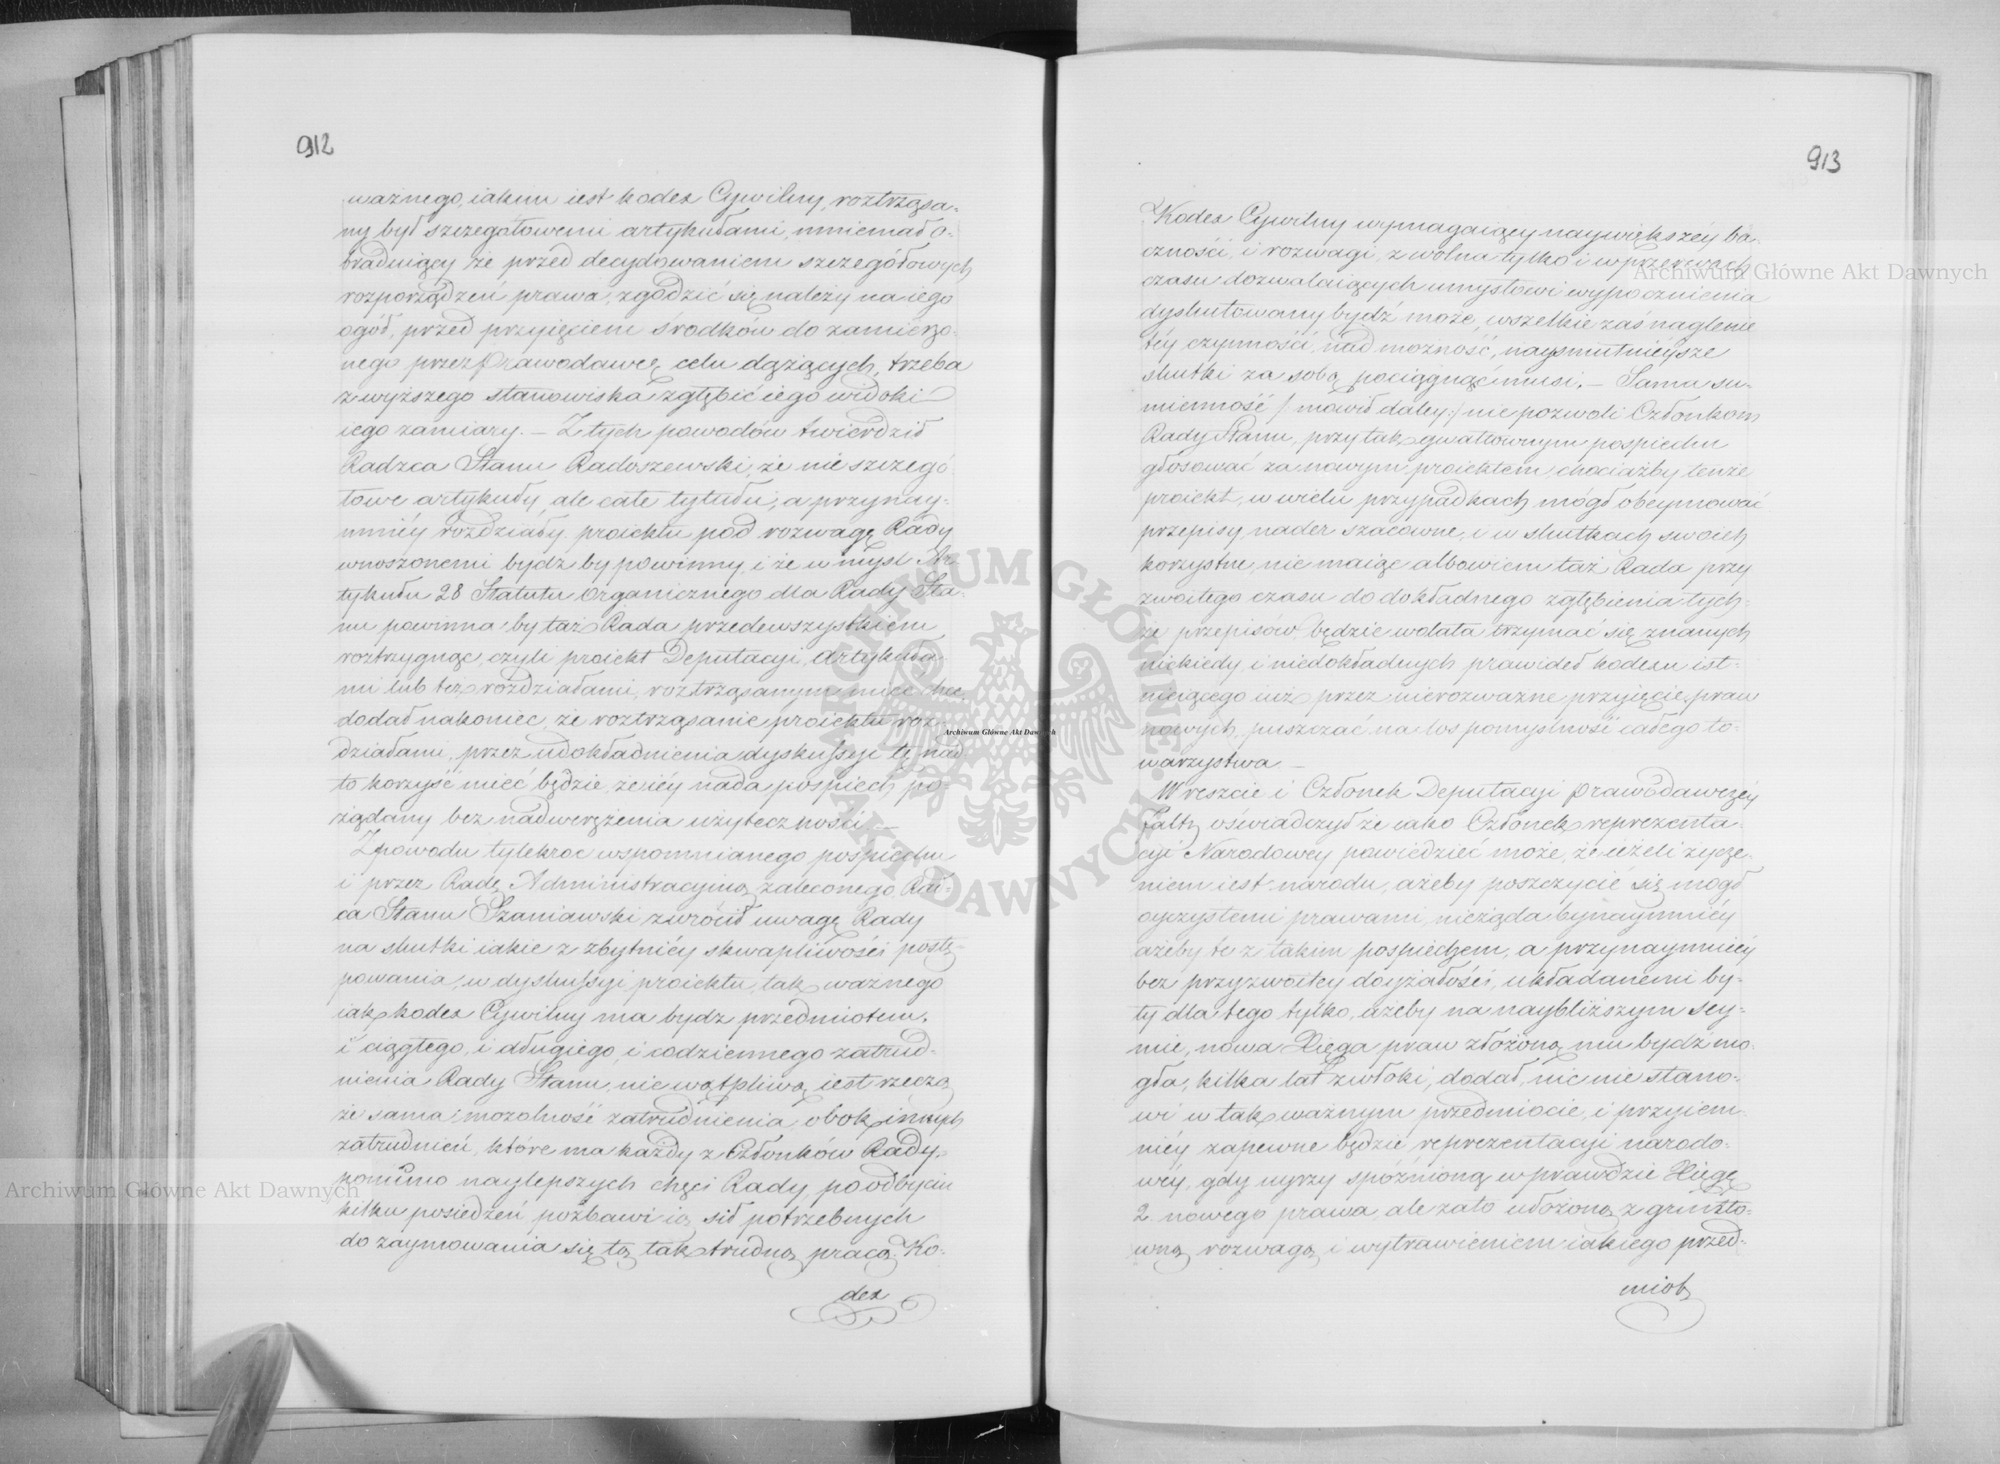 912
ważnego, iakim iest kodex Cywilny, roztrząsa-
ny był szczegółowemi artykułami, mniemał o-
braduiący że przed decydowaniem szczegółowych
rozporządzeń prawa, zgodzić się należy na iego
ogół, przed przyięciem środków do zamierzo-
nego przez prawodawcę celu dążących, trzeba
z wyższego stanowiska zgłębić iego widoki
iego zamiary. — Z tych powodów twierdził
Radzca Stanu Radoszewski, że nie szczegó-
łowe artykuły, ale całe tytułu, a przynay-
mniéy rozdziały proiektu pod rozwagę Rady
wnoszonemi bydź by powinny, i że w myśl Ar-
tykułu 28 Statutu Organicznego dla Rady Sta-
nu powinna by taż Rada przedewszystkiem
roztrzygnąć, czyli proiekt Deputacyi, artykuła-
mi lub też rozdziałami, roztrząsanym mieć chce,
dodał nakoniec, że roztrząsanie proiektu roz-
działami, przez udokładnienia dyskussyi tę nad
to korzyść mieć będzie, że iéy nada pospiech po-
żądany bez nadwerężenia użyteczności. —
Z powodu tylekroć wspomnianego pospiechu
i przez Radę Administracyiną zaleconego, Rai-
ca Stanu Szaniawski zwrócił uwagę Rady
na skutki iakie z zbytniéy skwapliwości postę-
powania, w dyskussyi proiektu, tak ważnego
iak kodex Cywilny ma bydz przedmiotem,
i ciągłego, i długiego, i codziennego zatrud-
nienia Rady Stanu, nie wątpliwą iest rzeczą
że sama mozolność zatrudnienia, obok innych
zatrudnień, które ma każdy z Członków Rady,
pomimo naylepszych chęci Rady, po odbyciu
kilku posiedzeń pozbawi ią sił potrzebnych
do zaymowania się tą tak trudną pracą. Ko-
dex
913
Kodex Cywilny wymagaiący naywiększéy ba-
czności, i rozwagi, z wolna tylko i w przerwach
czasu dozwalaiących umysłowi wypocznienia
dyskutowany bydź może, wszelkie zaś naglenie
téy czynności nad możność, naysmutniéysze
skutki za sobą pociągnąć musi. — Sama su-
mienność /: mówił daley :/ nie pozwoli Członkom
Rady Stanu, przy tak gwałtownym pospiechu
głosować za nowym proiektem, chociażby tenże
proiekt, w wielu przypadkach mógł obeymować
przepisy nader szacowne, i w skutkach swoich
korzystne, nie maiąc albowiem taż Rada przy
zwoitego czasu do dokładnego zgłębienia tych-
że przepisów, będzie wolała trzymać się znanych
niekiedy, i niedokładnych prawideł kodexu ist-
nieiącego iuż, przez nierozważne przyięcie praw
nowych, puszczać na los pomyślność całego to-
warzystwa. —
Wreszcie i Członek Deputacyi prawodawczéy
Faltz oświadczył że iako Członek reprezenta-
cyi Narodowéy powiedzieć może, że ieżeli życze-
niem iest narodu, ażeby poszczycić się mógł
oyczystemi prawami, nieżąda bynaymniéy
ażeby te z takim pospiechem, a przynaymniéy
bez przyzwoitey doyżałości, układanemi by-
ły dla tego tylko, ażeby na naybliższym Sey-
mie, nowa Xięga praw złożoną mu bydź mo-
gła, kilka lat zwłoki, dodał, nic nie stano-
wi w tak ważnym przedmiocie, i przyiem-
niéy zapewne będzie reprezentacyi narodo-
wéy, gdy uyrzy spóźnioną w prawdzie Xięgę
2. nowego prawa, ale zato ułożoną z grunto-
wną rozwagą i wytrawieniem iakiego przed-
miot